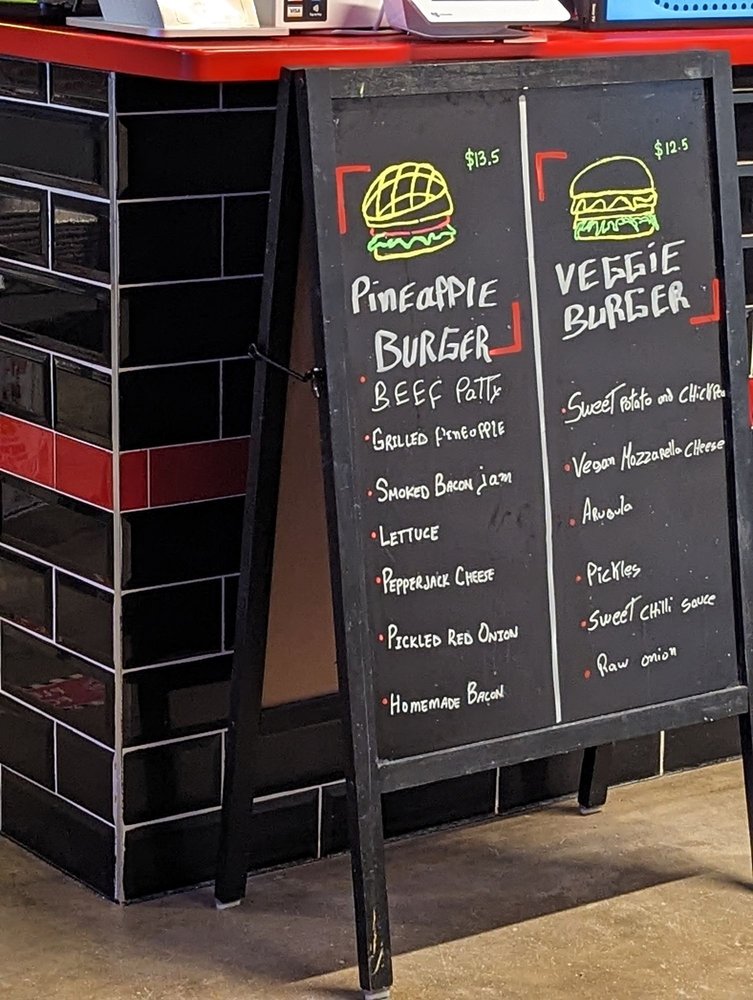 VISA
$13.5
PiNEAPPlE
BURGER
BEEF PaTTY
GRILLED PINEOPPLE
SMOKED BACON Jam
LETTUCE
PEPPERJACK CHEESE
PICKLED RED ONION
HOMEMADE BACON
$12.5
VEGGiE
BURGER
Sweet Potato and CHICKPea
Vegan Mozzarella CHeese
Arugula
Pickles
Sweet CHilli sauce
Raw onion